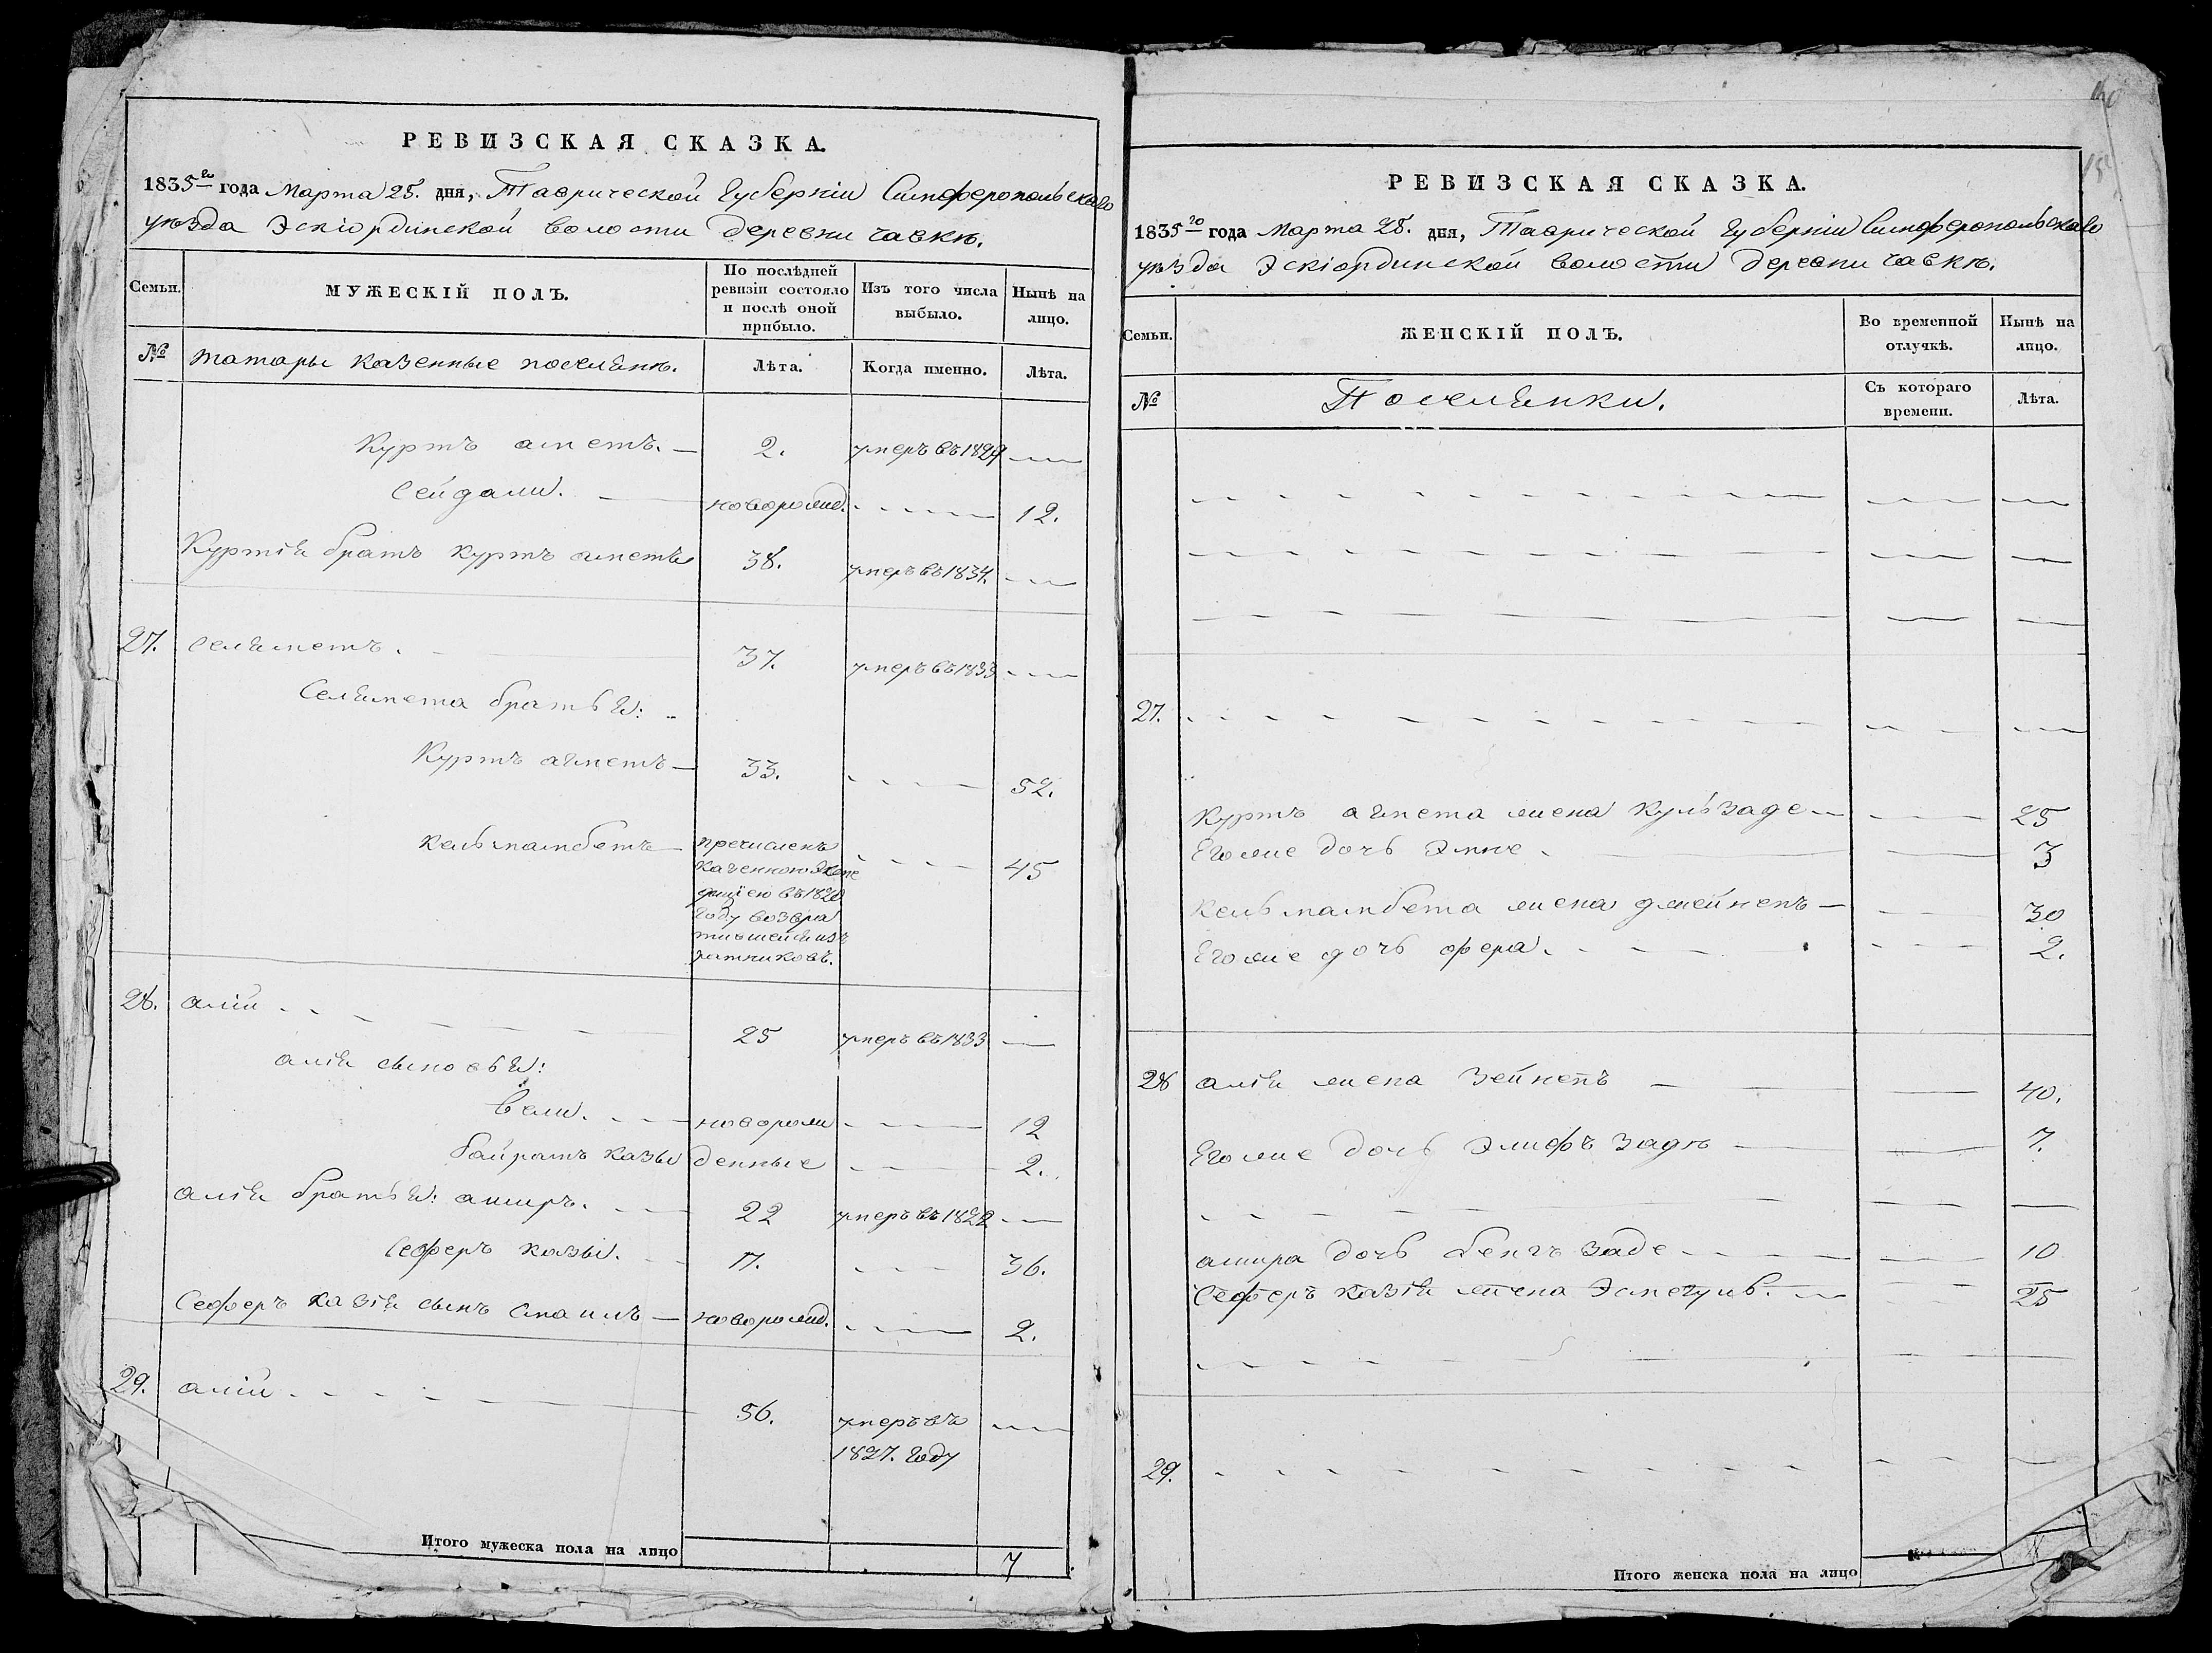 РЕВИЗСКАЯ СКАЗКА.
1835го года Марта 25. дня, Таврической Губерніи Симферопольскаго
уѣзда Эскіординской волости деревни Чавкѣ.
Семьи.
МУЖЕСКІЙ ПОЛЪ.
По послѣдней ревизіи состояло и послѣ оной прибыло.
Изъ того числа выбыло.
Нынѣ на лицо.
№
татары казенные поселянѣ.
Лѣта.
Когда именно.
Лѣта.
Куртъ аметъ. — 2. умеръ въ 1829 —
Сейдали. — новорожд. — 12.
Куртія братъ куртъ аметъ 38. умеръ въ 1834. —
27. Селяметъ. — 37. умеръ въ 1833 —
Селямета братья:
Куртъ агметъ — 33. — 52.
Кельмамбетъ — — 45
причисленъ
казенною Экспе
дицією въ 1820
году возвра
тившейся изъ
28. алій — 25 умеръ въ 1833 —
алія сыновья:
Вели. — новорож — 12
байрамъ казы денные — 2.
алія братья: ашыръ. — 22 умеръ въ 1822 —
Сеферъ казы. — 17. — 36.
Сеферъ казія сынъ Смаилъ — новорожд. — 2.
29. алій — 56. умеръ въ —
1827. году
Итого мужеска пола на лицо
7
РЕВИЗСКАЯ СКАЗКА.
1835го года Марта 25. дня, Таврической Губерніи Симферопольскаго
уѣзда Эскіординской волости деревни Чавкѣ.
Семьи.
ЖЕНСКІЙ ПОЛЪ.
Во временной отлучкѣ.
Нынѣ на лицо.
№
Поселянки.
Съ котораго времени.
Лѣта.
27. —
Куртъ агмета жена Кульзаде — — 25
Егоже дочь Эмне. — 3
Кельмамбета жена джейнепъ — — 30
Егоже дочь фера. — 2.
28 алія жена Зейнепъ — — 40.
Егоже дочь Элифъ Задѣ — — 7.
ашира дочь Бенгъ заде — — 10
Сеферъ казія жена Эсмегуль. — — 25
29. —
Итого женска пола на лицо